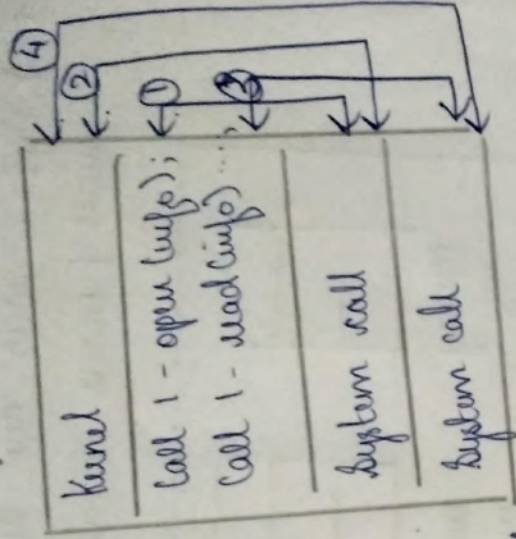 ④
②
①
③
Kernel
Call 1 - open (info);
Call 1 - read (info) ...;
System call
System call